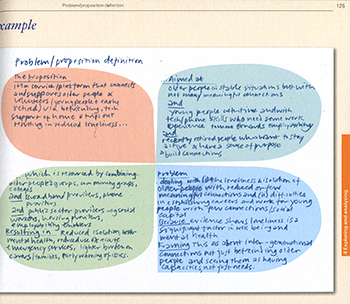 Problem/proposition definition
125
example
Problem/proposition definition
The proposition
is a service/platform that connects
and supports older people &
volunteers (young people & early
retired) via befriending, tech
support @ home & trips out
resulting in reduced loneliness...
...Aimed at
older people in stable situations but with
not many meaningful connections
and
young people with time and with
tech/phone skills who need some work
experience towards employability
and
recently retired people who want to stay
active & have a sense of purpose
& build connections
...which is resourced by combining
older people's groups, community groups,
colleges
and broadband providers, phone
providers
and public sector providers e.g. social
workers, housing providers,
employability
Resulting in reduced isolation, better
mental health, reduced use of acute
emergency services, lighter burden on
carers/families,
problem
dealing with (a) the loneliness & isolation of
older people with reduced or few
meaningful connections and (b) difficulties
in establishing careers and work for young
people with few connections/social
capital
Because evidence shows loneliness is a
significant factor in well-being and
mental health
Framing this as about inter-generational
connections not just befriending older
people and seeing them as having
capacities not just needs.
4 Exploring and analysing